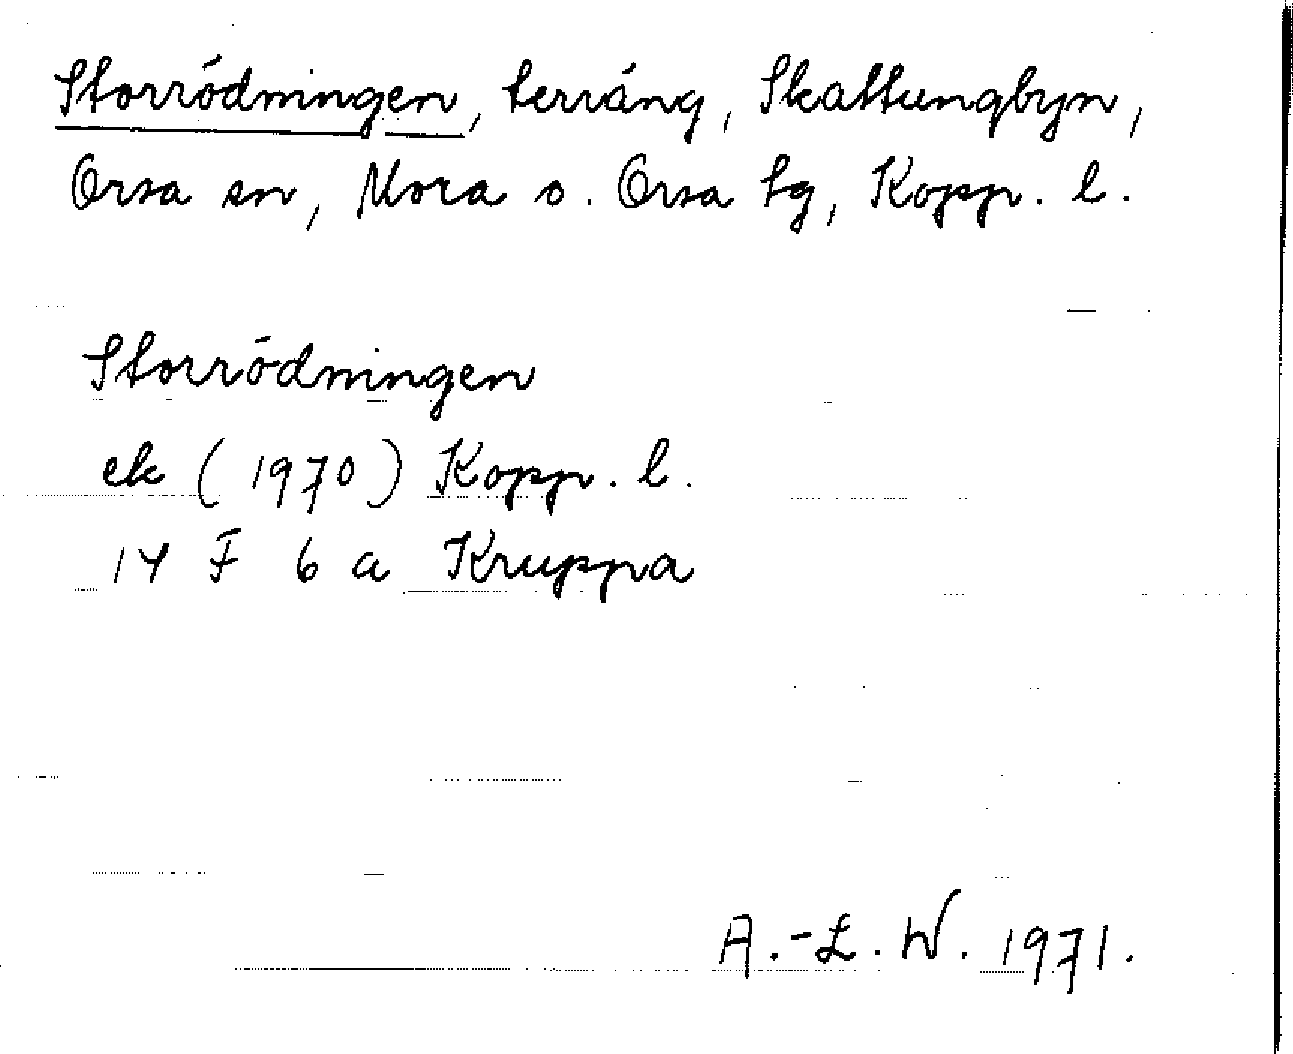 Storrödningen, terräng, Skattungbyn,
Orsa sn, Mora o. Orsa tg, Kopp. l.
Storrödningen
ek (1970) Kopp. l.
14 F 6 a Kruppa
A.-L. W. 1971.